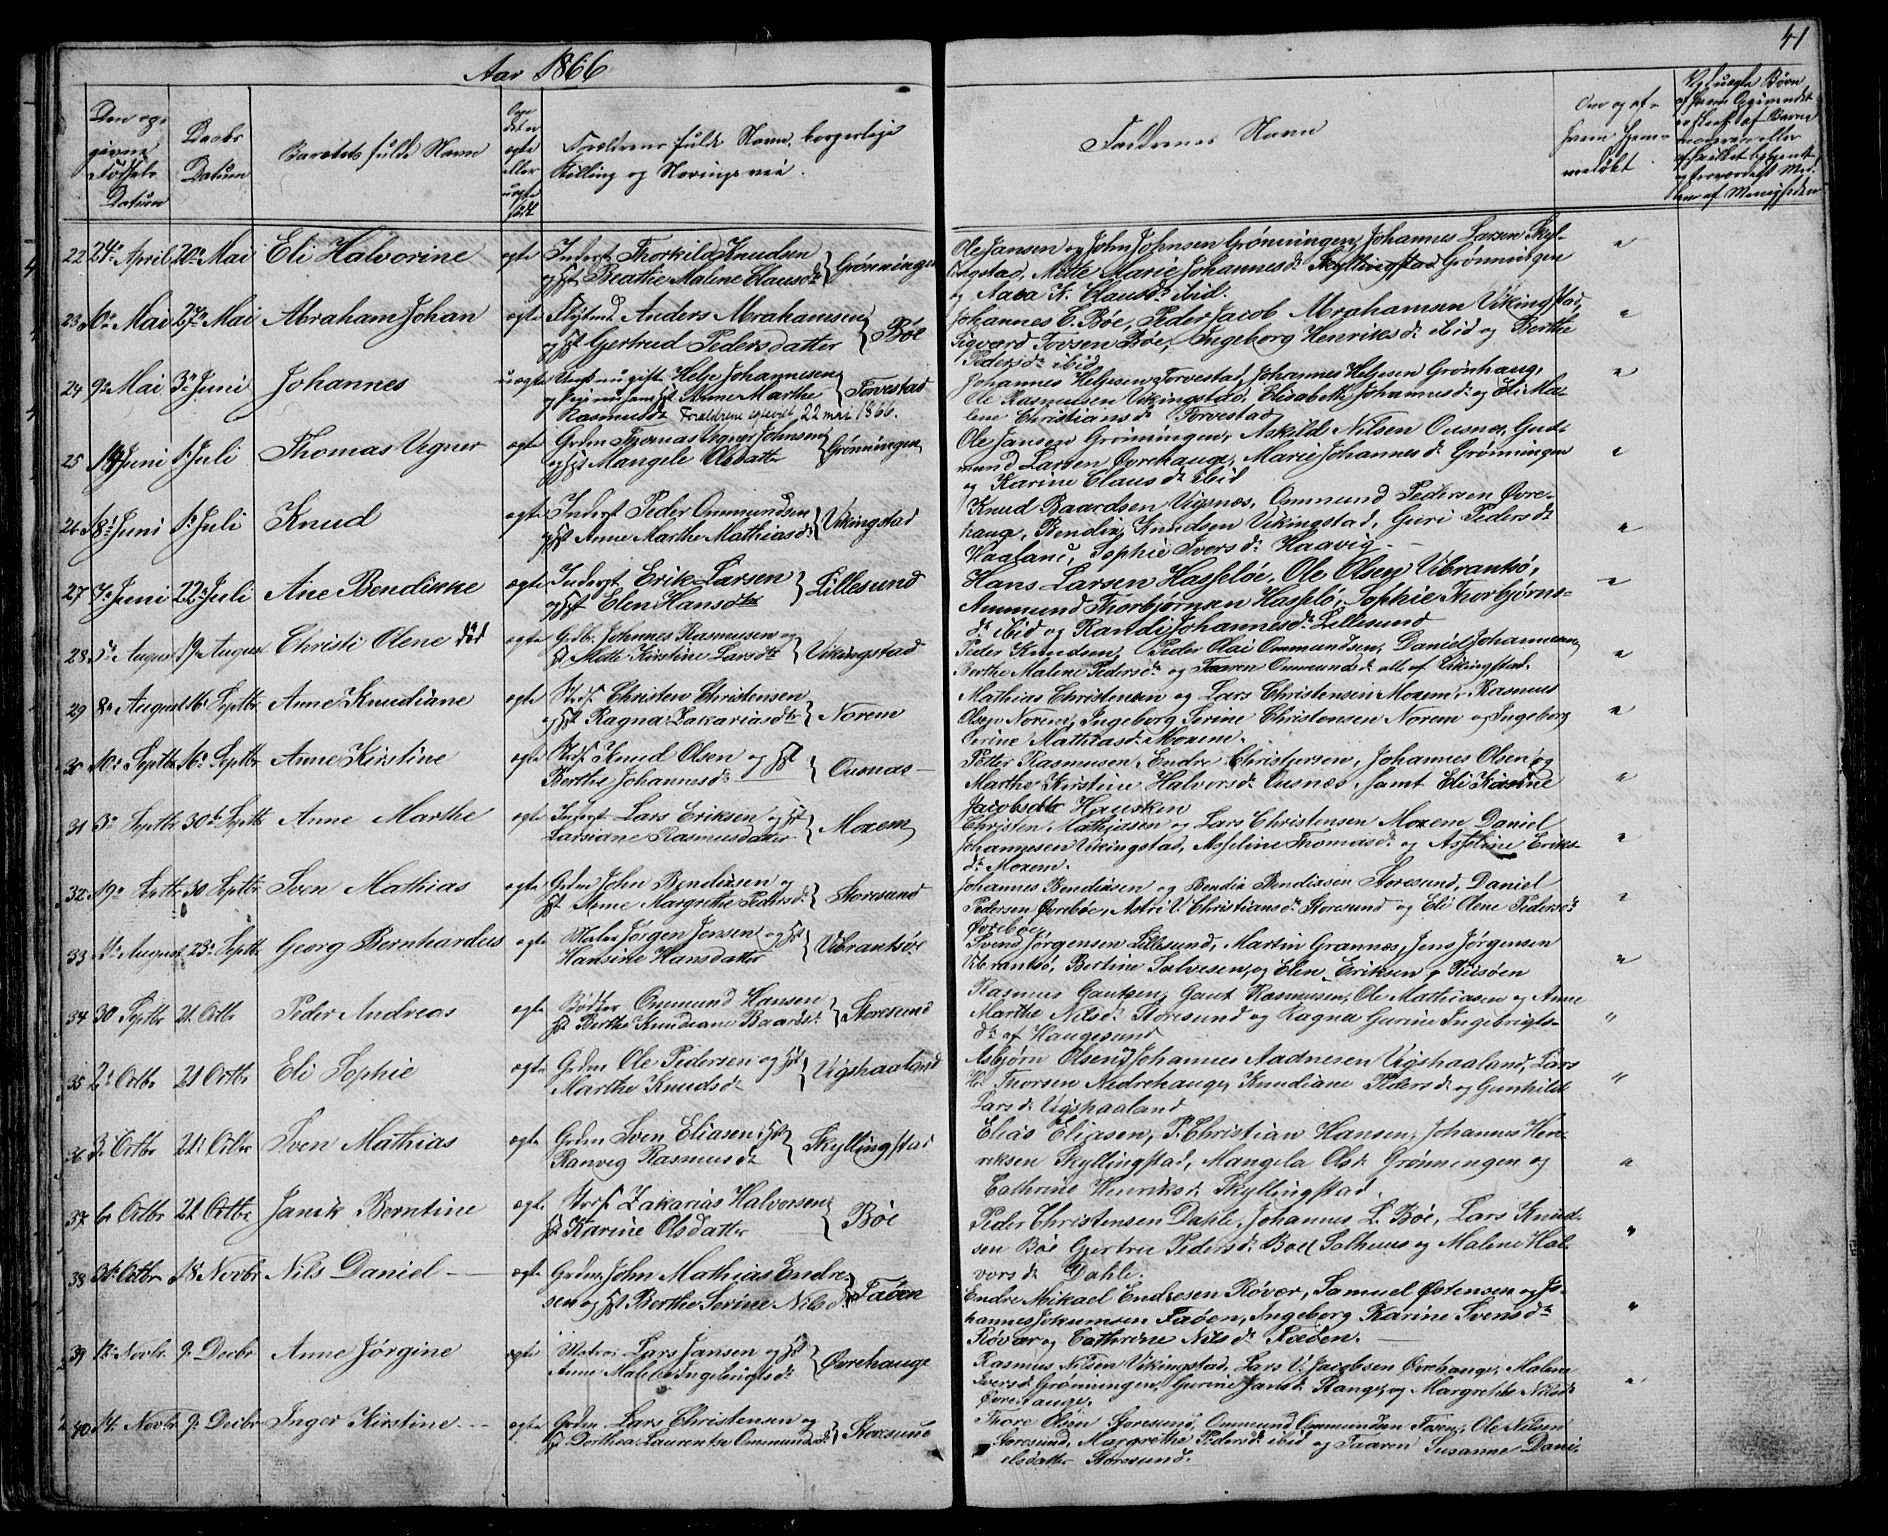 41
Aar 1866
Den op-
givne
Fødsels
Datum
Daabs
Datum
Barnets fulde Navn
ægte
eller
uægte
født
Forældrenes fulde Navn, borgerlige
Stilling og Næringsvei.
Faddernes Navn
22 24de April 20de Mai Eli Halvorine ægte Inderst Thorkild Knudsen
og Hst Beathe Malene Clausdr } Grønningen
Ole Jansen og John Johnsen Grønningen, Johannes Larsen Skyl-
lingstad, Mette Marie Johannesdr Skyllingstad Grønningen
og Aasa K. Clausdr ibid.
23 6te Mai 27de Mai Abraham Johan ægte Anders Abrahamsen
og Hst Gjertrud Pedersdatter } Bøe
Johannes E. Bøe, Peder Jacob Abrahamsen Vikingstad,
Sigvard Tovsen Bøe, Ingeborg Henriksdr ibid og Berthe
Pedersdr ibid
24 9de Mai 3de Juni Johannes uægte Helje Johannesen
Anne Marthe
Rasmusdr Forældrene egteviet 22 mai 1866. } Torvestad
Johannes Heljesen Torvestad, Johannes Heljesen Grønhaug,
Ole Rasmussen Vikingstad, Elisabeth Johannesdr og Eli Ma-
lene Christiansdr Torvestad
25 14 Juni 1 Juli Thomas Vegner ægte Grdm Thomas Vegner Johnsen
og Hst Mangele Olsdatter } Grønningen
Ole Jansen Grønningen, Askild Nilsen Ousnes, Gud-
mund Larsen Øvrehauge, Marie Johannesdr Grønningen
og Karine Clausdr ibid
26 18de Juni 1 Juli Knud ægte Inderst Peder Ommundsen
og Hst Anne Marthe Mathiasdr } Vikingstad
Knud Baardsen Vigsnes, Ommund Pedersen Øvre-
hauge, Bendix Knudsen Vikingstad, Guri Pedersdr
Vaaland, Sophie Iversdr Haavig.
27 7de Juni 22de Juli Ane Bendikke ægte Inderst Erik Larsen
og Hst Elen Hansdtr } Lillesund
Hans Larsen Hasseløe, Ole Olsen Vibrantø,
Ammund Thorbjørnsen Hasselø, Sophie Thorbjørns-
dr ibid og Randi Johannesdr Lillesund
28 5te August 19 August Christi Olene død ægte Johannes Rasmusen og
Hst Mette Kirstine Larsdtr } Vikingstad
Peder Knudsen, Peder Olai Ommundsen, Daniel Johannesen,
Berthe Malene Pedersdr og Taaren Ommundsdr alle af Vikingstad.
29 8de August 16de Septbr Anne Knudiane ægte Christen Christensen
og Hst Ragna Zakariasdtr } Norem
Mathias Christensen og Lars Christensen Moxem, Rasmus
Olsen Norem, Ingeborg Serine Christensen Norem og Ingeborg
Serine Mathiasdr Moxem.
30 10de Septbr 16de Septbr Anne Kirstine ægte Knud Olsen og Hst
Berthe Johannesdr } Ousnas
Peder Rasmusen, Endre Christensen, Johannes Olsen og
Marthe Kirstine Halvorsdr Ousnes, samt Eli Karine
Jacobsdtr Hausken
31 3de Septbr 30te Septbr Anne Marthe ægte Inderst Lars Eriksen og Hst
Larsiane Rasmusdatter } Moxem
Christen Mathiesen og Lars Christensen Moxem, Daniel
Johannesen Vikingstad, Asseline Thomasdr og Asseline Eriks-
dr Moxem.
32 19de Septbr 30 Septbr Sven Mathias ægte Grdm John Bendixsen og
Hst Anne Margrethe Pedersdr } Storesund
Johannes Bendixsen og Bendix Bendixsen Storesund, Daniel
Pedersen Øvrebøe, Astri V. Christiansdr Storesund og Eli Olene Pedersdr
Øvrebøe.
33 August 23de Septbr Georg Bernhardus ægte Maler Jørgen Jensen og Hst
Hansine Hansdatter } Vibrantsøe
Svend Jørgensen Lillesund, Martin Grannes, Jens Jørgensen
Vibrantsø, Bertine Salvesen, og Elen Eriksen Risøen
34 30 Septbr 21 Octbr Peder Andreas ægte Bødker Ommund Hansen
Hst Berthe Knudiane Baardsdr } Storesund
Rasmus Gautsen, Gaut Rasmusen, Ole Mathiasen og Anne
Marthe Nilsdr Storesund og Ragna Gurine Ingebrigts-
dr af Haugesund
35 2de Octbr 21 Octbr Eli Sophie ægte Grdm Ole Pedersen og Hst
Marthe Knudsdr } Vigshaaland
Asbjørn Olsen, Johannes Aadnesen Vigshaaland, Lars
H. Thorsen Nedrehauge, Knudiane Pedersdr og Gunhild
Larsdr Vigshaaland
36 3de Octbr 21de Octbr Sven Mathias ægte Grdm Sven Eliasen, Hst
Ranveg Rasmusdr } Skyllingstad
Elias Eliasen, P. Christian Hansen, Johannes Hen-
riksen Skyllingstad, Mangela Olsdr Grønningen og
Cathrine Henriksdr Skyllingstad.
37 6te Octbr 21 Octbr Janik Berntine ægte Zakarias Halvorsen
Hst Karine Olsdatter } Bøe
Peder Christensen Dahle, Johannes L. Bøe, Lars Knud-
sen Bøe, Gjertru Pedersdr Solhuus og Malene Hal-
vorsdr Dahle.
38 Octbr 18 Novbr Nils Daniel ægte Grdm John Mathias Endre-
sen og Hst Berthe Serine Nilsdr } Faøen
Endre Mikael Endresen Røvær, Samuel Østensen og Jo-
hannes Jokumsen Faøen, Ingeborg Karine Svensdr
Røvær og Cathrine Nilsdr Faøen.
39 Novbr 9de Decbr Anne Jørgine ægte Matros Lars Jansen og Hst
Anne Malene Ingebrigtsdr } Øvrehauge
Rasmus Nilsen Vikingstad, Lars V. Jacobsen Øvrehauge, Malene
Iversdr Grønningen, Gurine Jansdr Stange, og Margrethe Nilsdr
Øvrehauge.
40 14 Novbr 9de Decbr Inger Kirstine ægte Grdm Lars Christensen og
Hst Dorthea Laurentse Ommundsdr } Storesund
Thore Olsen Storesund, Ommund Ommundsen Fosen, Ole Nilsen
Storesund, Margrethe Pedersdr ibid og Taaren Susanne Dani-
elsdatter Storesund.